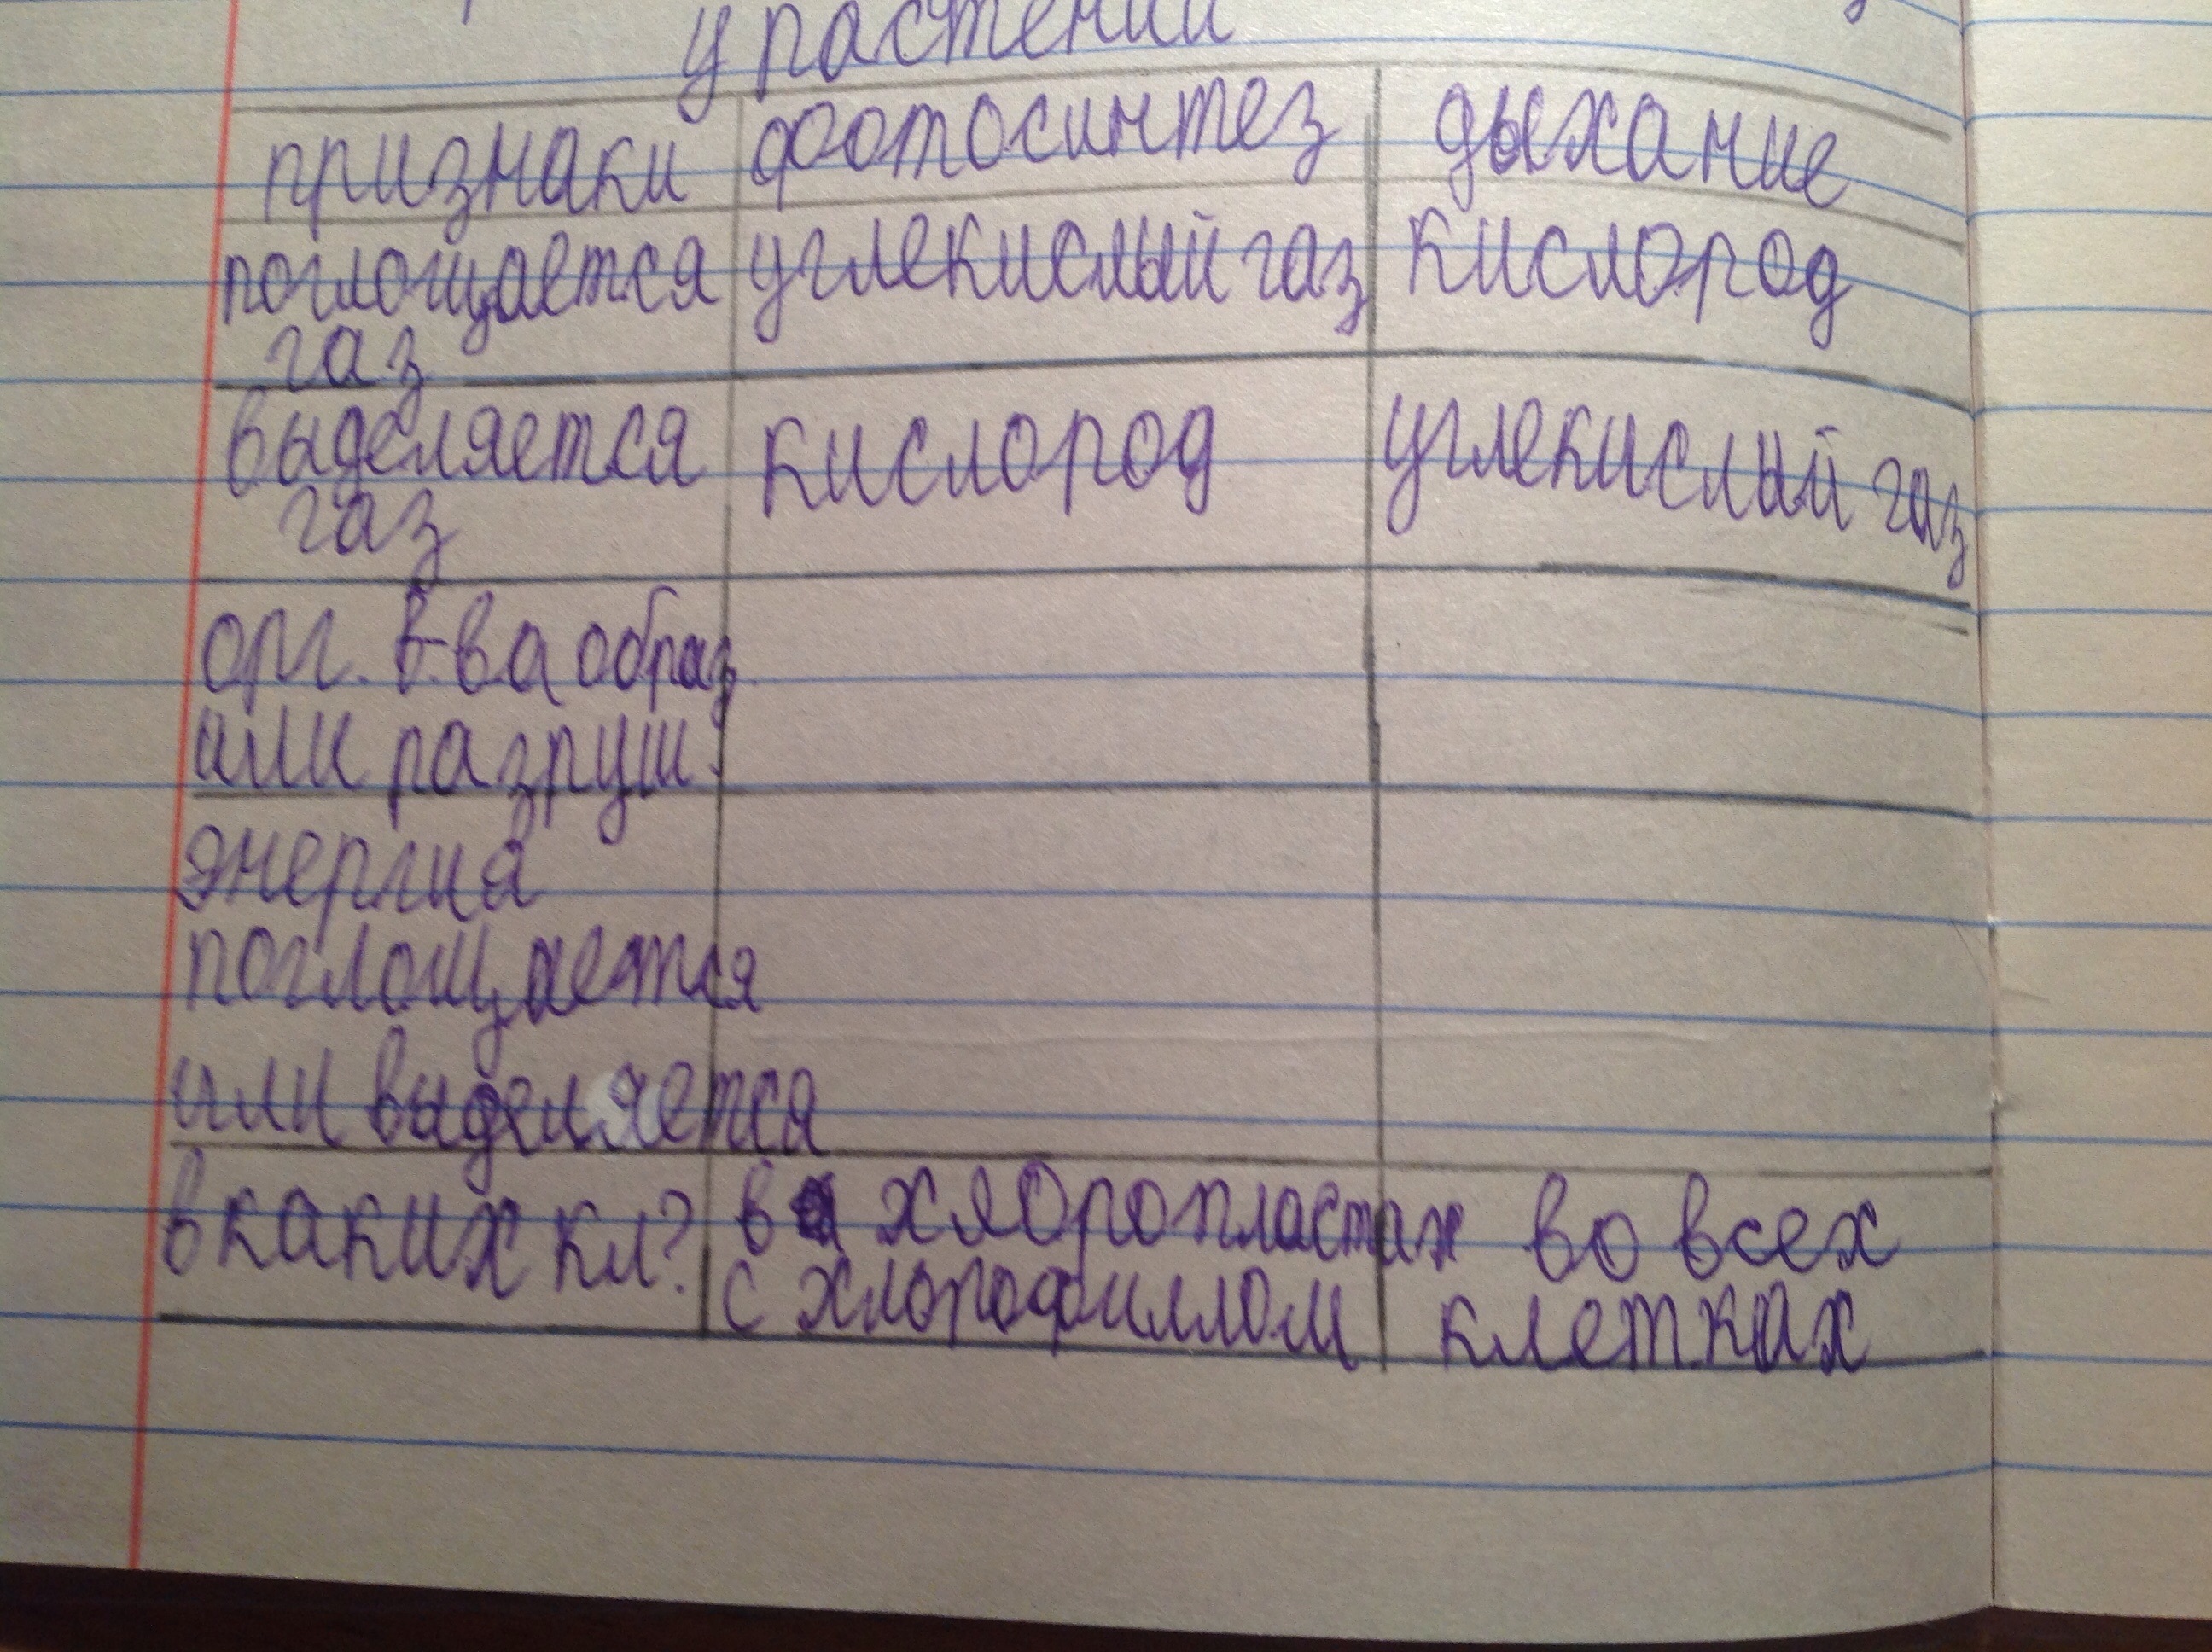 у растений
признаки фотосинтез дыхание
поглощается углекислый газ кислород
газ
выделяется кислород углекислый газ
газ
орг. в-ва образ.
или разруш.
энергия
поглощается
или выделяется
в каких кл? в хлоропластах во всех
с хлорофиллом клетках